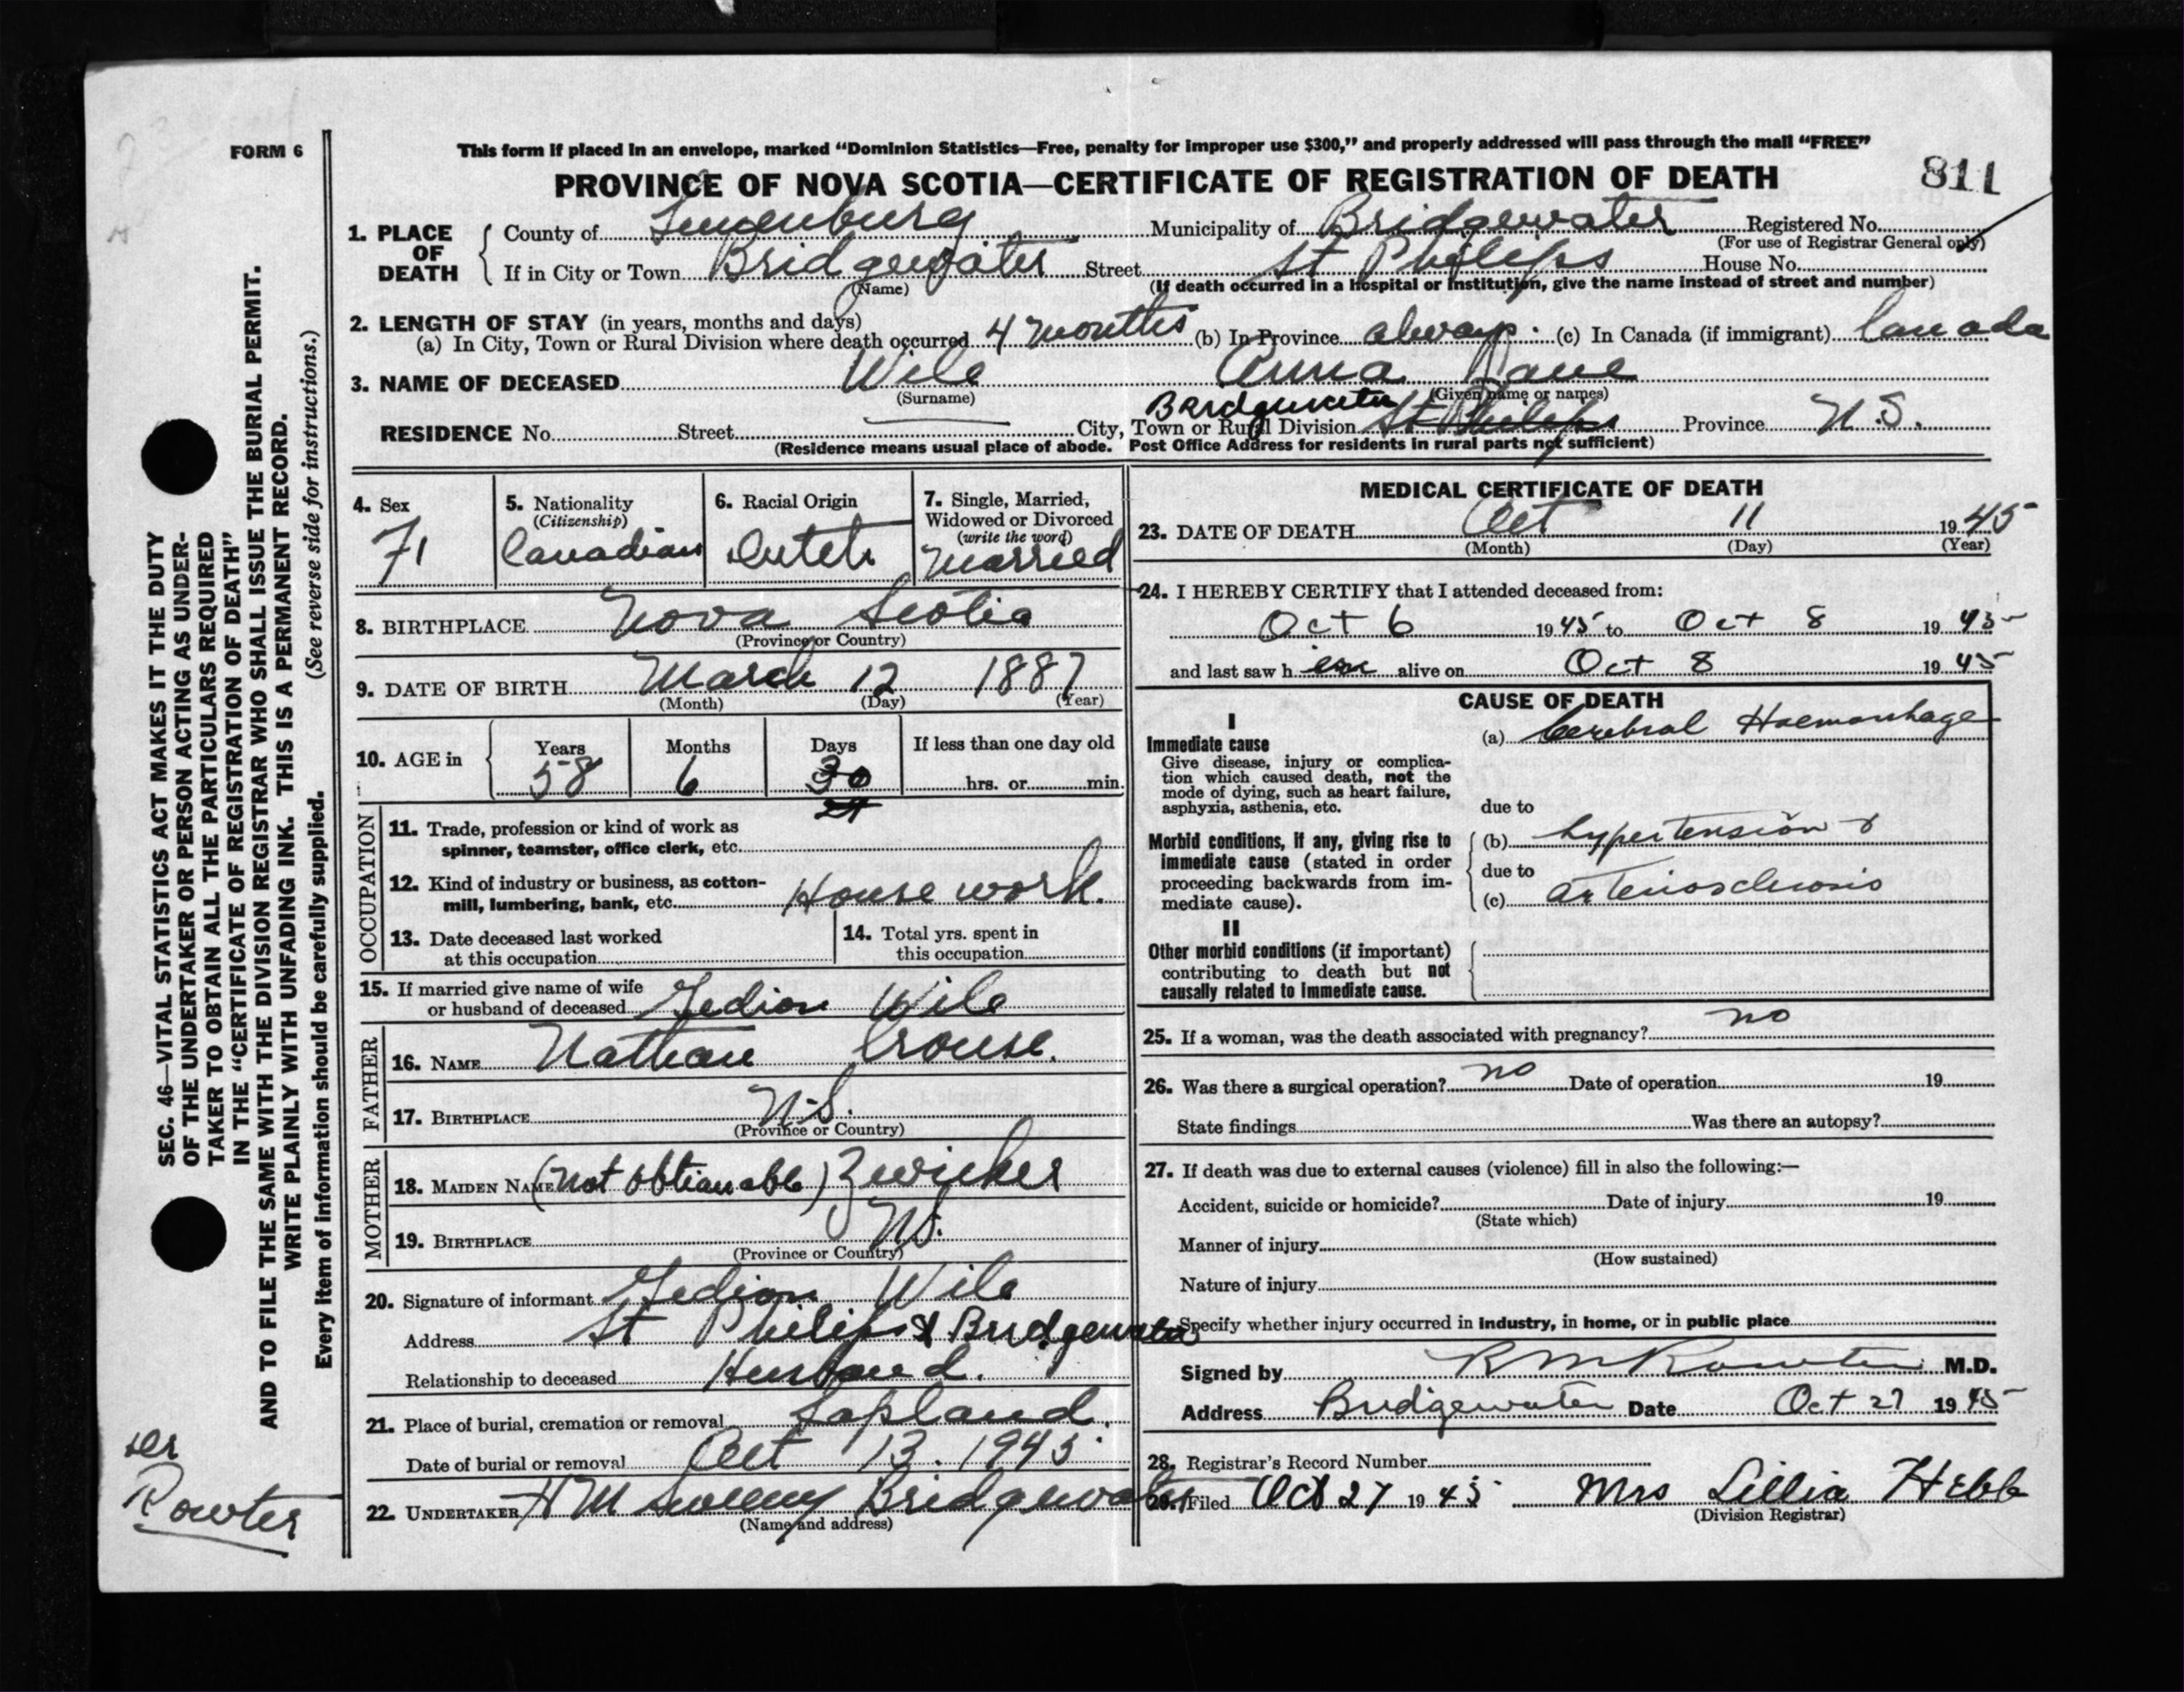 FORM 6
This form if placed in an envelope, marked "Dominion Statistics—Free, penalty for improper use $300," and properly addressed will pass through the mail "FREE"
PROVINCE OF NOVA SCOTIA—CERTIFICATE OF REGISTRATION OF DEATH
811
1. PLACE OF DEATH
County of Lunenburg Municipality of Bridgewater Registered No.
(For use of Registrar General only)
If in City or Town Bridgewater Street St Philips House No.
(Name) (If death occurred in a hospital or institution, give the name instead of street and number)
2. LENGTH OF STAY (in years, months and days)
(a) In City, Town or Rural Division where death occurred 4 months (b) In Province always (c) In Canada (if immigrant) Canada
3. NAME OF DECEASED Wile Anna Jane
(Surname) (Given name or names)
Bridgewater
RESIDENCE No. Street City, Town or Rural Division St Philips Province N.S.
(Residence means usual place of abode. Post Office Address for residents in rural parts not sufficient)
4. Sex
F
5. Nationality
(Citizenship)
Canadian
6. Racial Origin
Dutch
7. Single, Married,
Widowed or Divorced
(write the word)
Married
8. BIRTHPLACE Nova Scotia
(Province or Country)
9. DATE OF BIRTH March 12 1887
(Month) (Day) (Year)
10. AGE in
Years Months Days If less than one day old
58 6 30 hrs. or min.
OCCUPATION
11. Trade, profession or kind of work as
spinner, teamster, office clerk, etc.
12. Kind of industry or business, as cotton-
mill, lumbering, bank, etc. House work.
13. Date deceased last worked
at this occupation
14. Total yrs. spent in
this occupation
15. If married give name of wife
or husband of deceased Gedion Wile
FATHER
16. NAME Nathan Crouse.
17. BIRTHPLACE N.S.
(Province or Country)
MOTHER
18. MAIDEN NAME (not obtianable) Zwicker
19. BIRTHPLACE N.S.
(Province or Country)
20. Signature of informant Gedion Wile
Address St Philips St Bridgewater
Relationship to deceased Husband.
21. Place of burial, cremation or removal Lapland.
Date of burial or removal Oct 13. 1945
22. UNDERTAKER H M Sweeny Bridgewater
(Name and address)
MEDICAL CERTIFICATE OF DEATH
23. DATE OF DEATH Oct 11 1945
(Month) (Day) (Year)
24. I HEREBY CERTIFY that I attended deceased from:
Oct 6 1945 to Oct 8 1945
and last saw h er alive on Oct 8 1945
CAUSE OF DEATH
I
Immediate cause
Give disease, injury or complica-
tion which caused death, not the
mode of dying, such as heart failure,
asphyxia, asthenia, etc.
(a) Cerebral Haemorrhage
due to
Morbid conditions, if any, giving rise to
immediate cause (stated in order
proceeding backwards from im-
mediate cause).
(b) hypertension &
due to
(c) arteriosclerosis
II
Other morbid conditions (if important)
contributing to death but not
causally related to immediate cause.
25. If a woman, was the death associated with pregnancy? no
26. Was there a surgical operation? no Date of operation 19
State findings Was there an autopsy?
27. If death was due to external causes (violence) fill in also the following:—
Accident, suicide or homicide? Date of injury 19
(State which)
Manner of injury
(How sustained)
Nature of injury
Specify whether injury occurred in industry, in home, or in public place
Signed by R M Rowter M.D.
Address Bridgewater Date Oct 27 1945
28. Registrar's Record Number
29. Filed Oct 27 1945 Mrs Lillia Hebb
(Division Registrar)
SEC. 46—VITAL STATISTICS ACT MAKES IT THE DUTY
OF THE UNDERTAKER OR PERSON ACTING AS UNDER-
TAKER TO OBTAIN ALL THE PARTICULARS REQUIRED
IN THE "CERTIFICATE OF REGISTRATION OF DEATH"
AND TO FILE THE SAME WITH THE DIVISION REGISTRAR WHO SHALL ISSUE THE BURIAL PERMIT.
WRITE PLAINLY WITH UNFADING INK. THIS IS A PERMANENT RECORD.
Every item of information should be carefully supplied. (See reverse side for instructions.)
Rowter